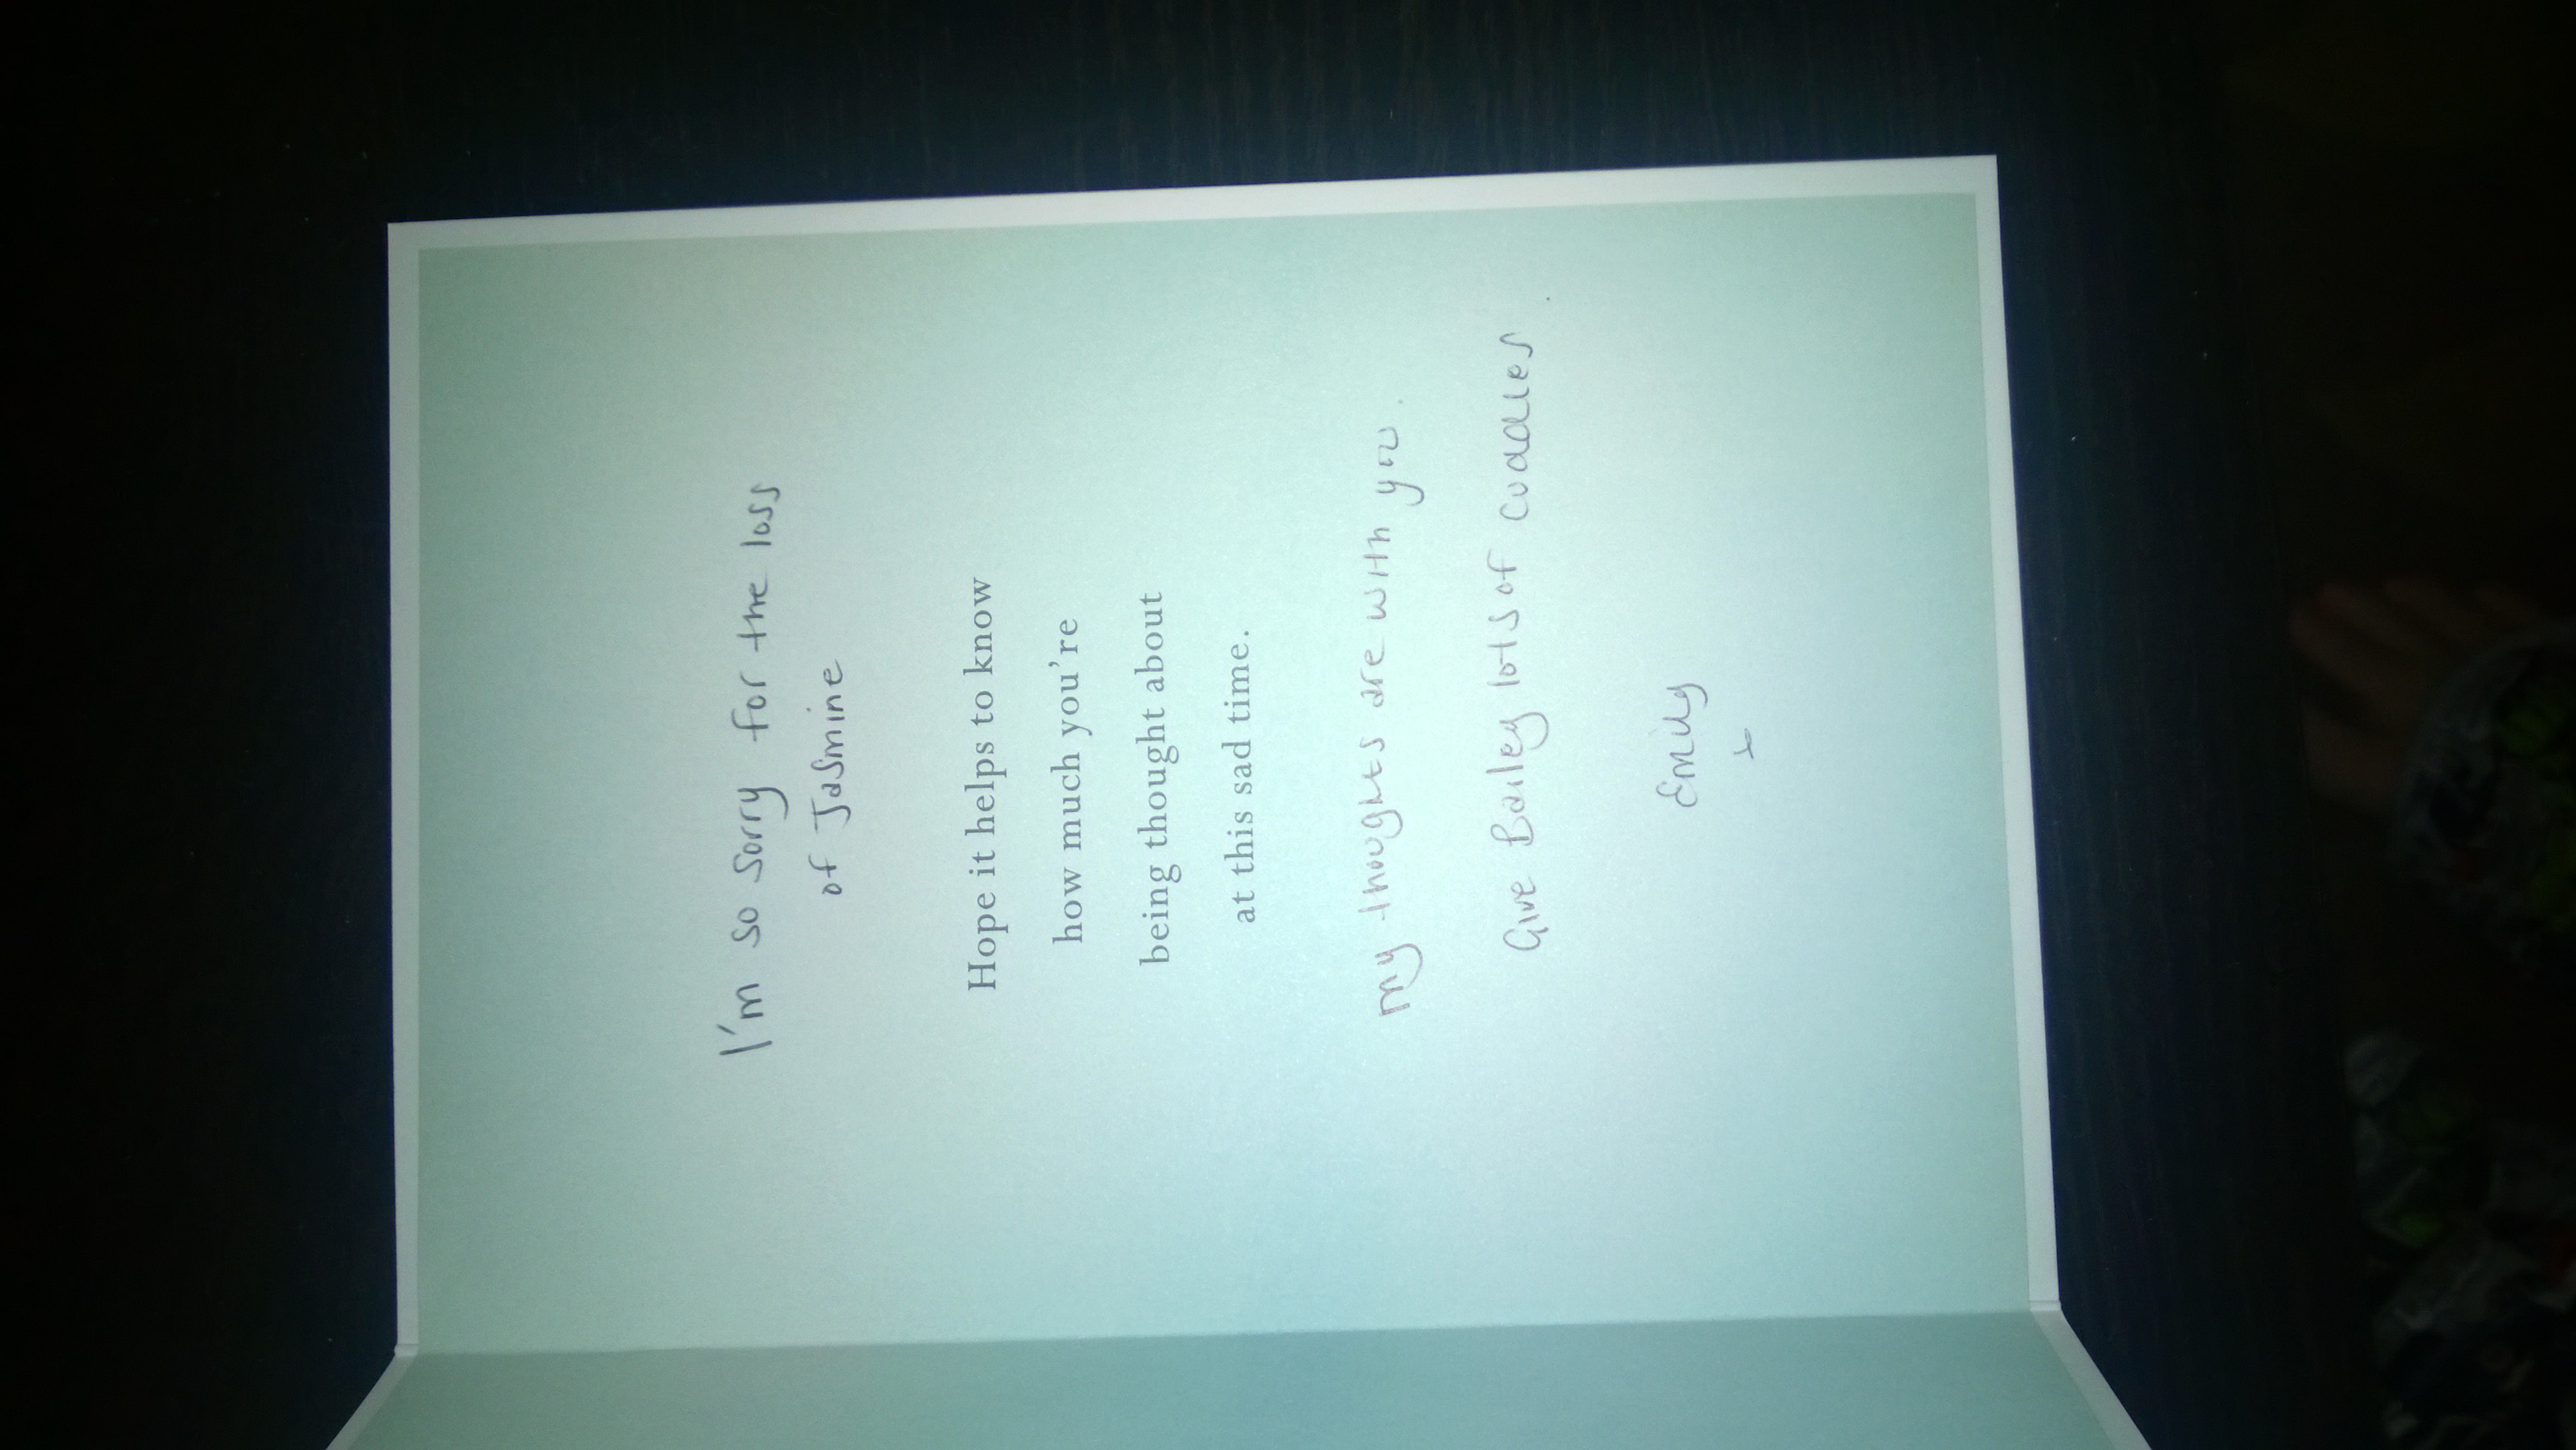 I'm so sorry for the loss
of Jasmine
Hope it helps to know
how much you're
being thought about
at this sad time.
my thoughts are with you.
Give Bailey lots of cuddles
Emily
x